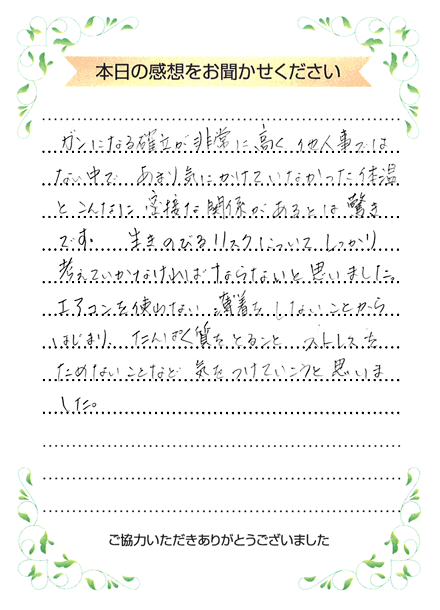 本日の感想をお聞かせください
ガンになる確立が非常に高く他人事では
ない中で あまり気にかけていなかった体温
とこんなに密接な関係があるとは驚き
です。 生きのびるリスクについてしっかり
考えていかなければならないと思いました。
エアコンを使わない 薄着をしないことから
はじまり、たんぱく質をとること ストレスを
ためないことなど 気をつけていこうと思いま
した。
ご協力いただきありがとうございました